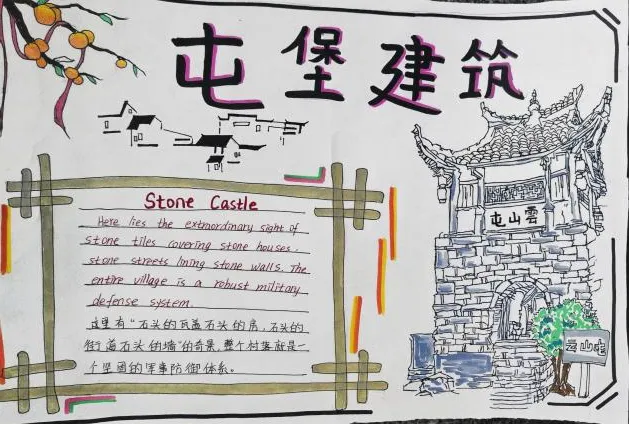 屯堡建筑
屯山雲
Stone Castle
Here lies the extraordinary sight of
stone tiles covering stone houses,
stone streets lining stone walls. The
entire village is a robust military
defense system.
这里有“石头的瓦盖石头的房，石头的
街道石头的墙”的奇景，整个村寨就是一
个坚固的军事防御体系。
云山屯